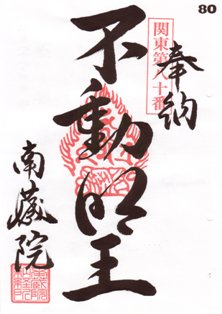 80
奉納
関東第八十番
不動明王
南蔵院